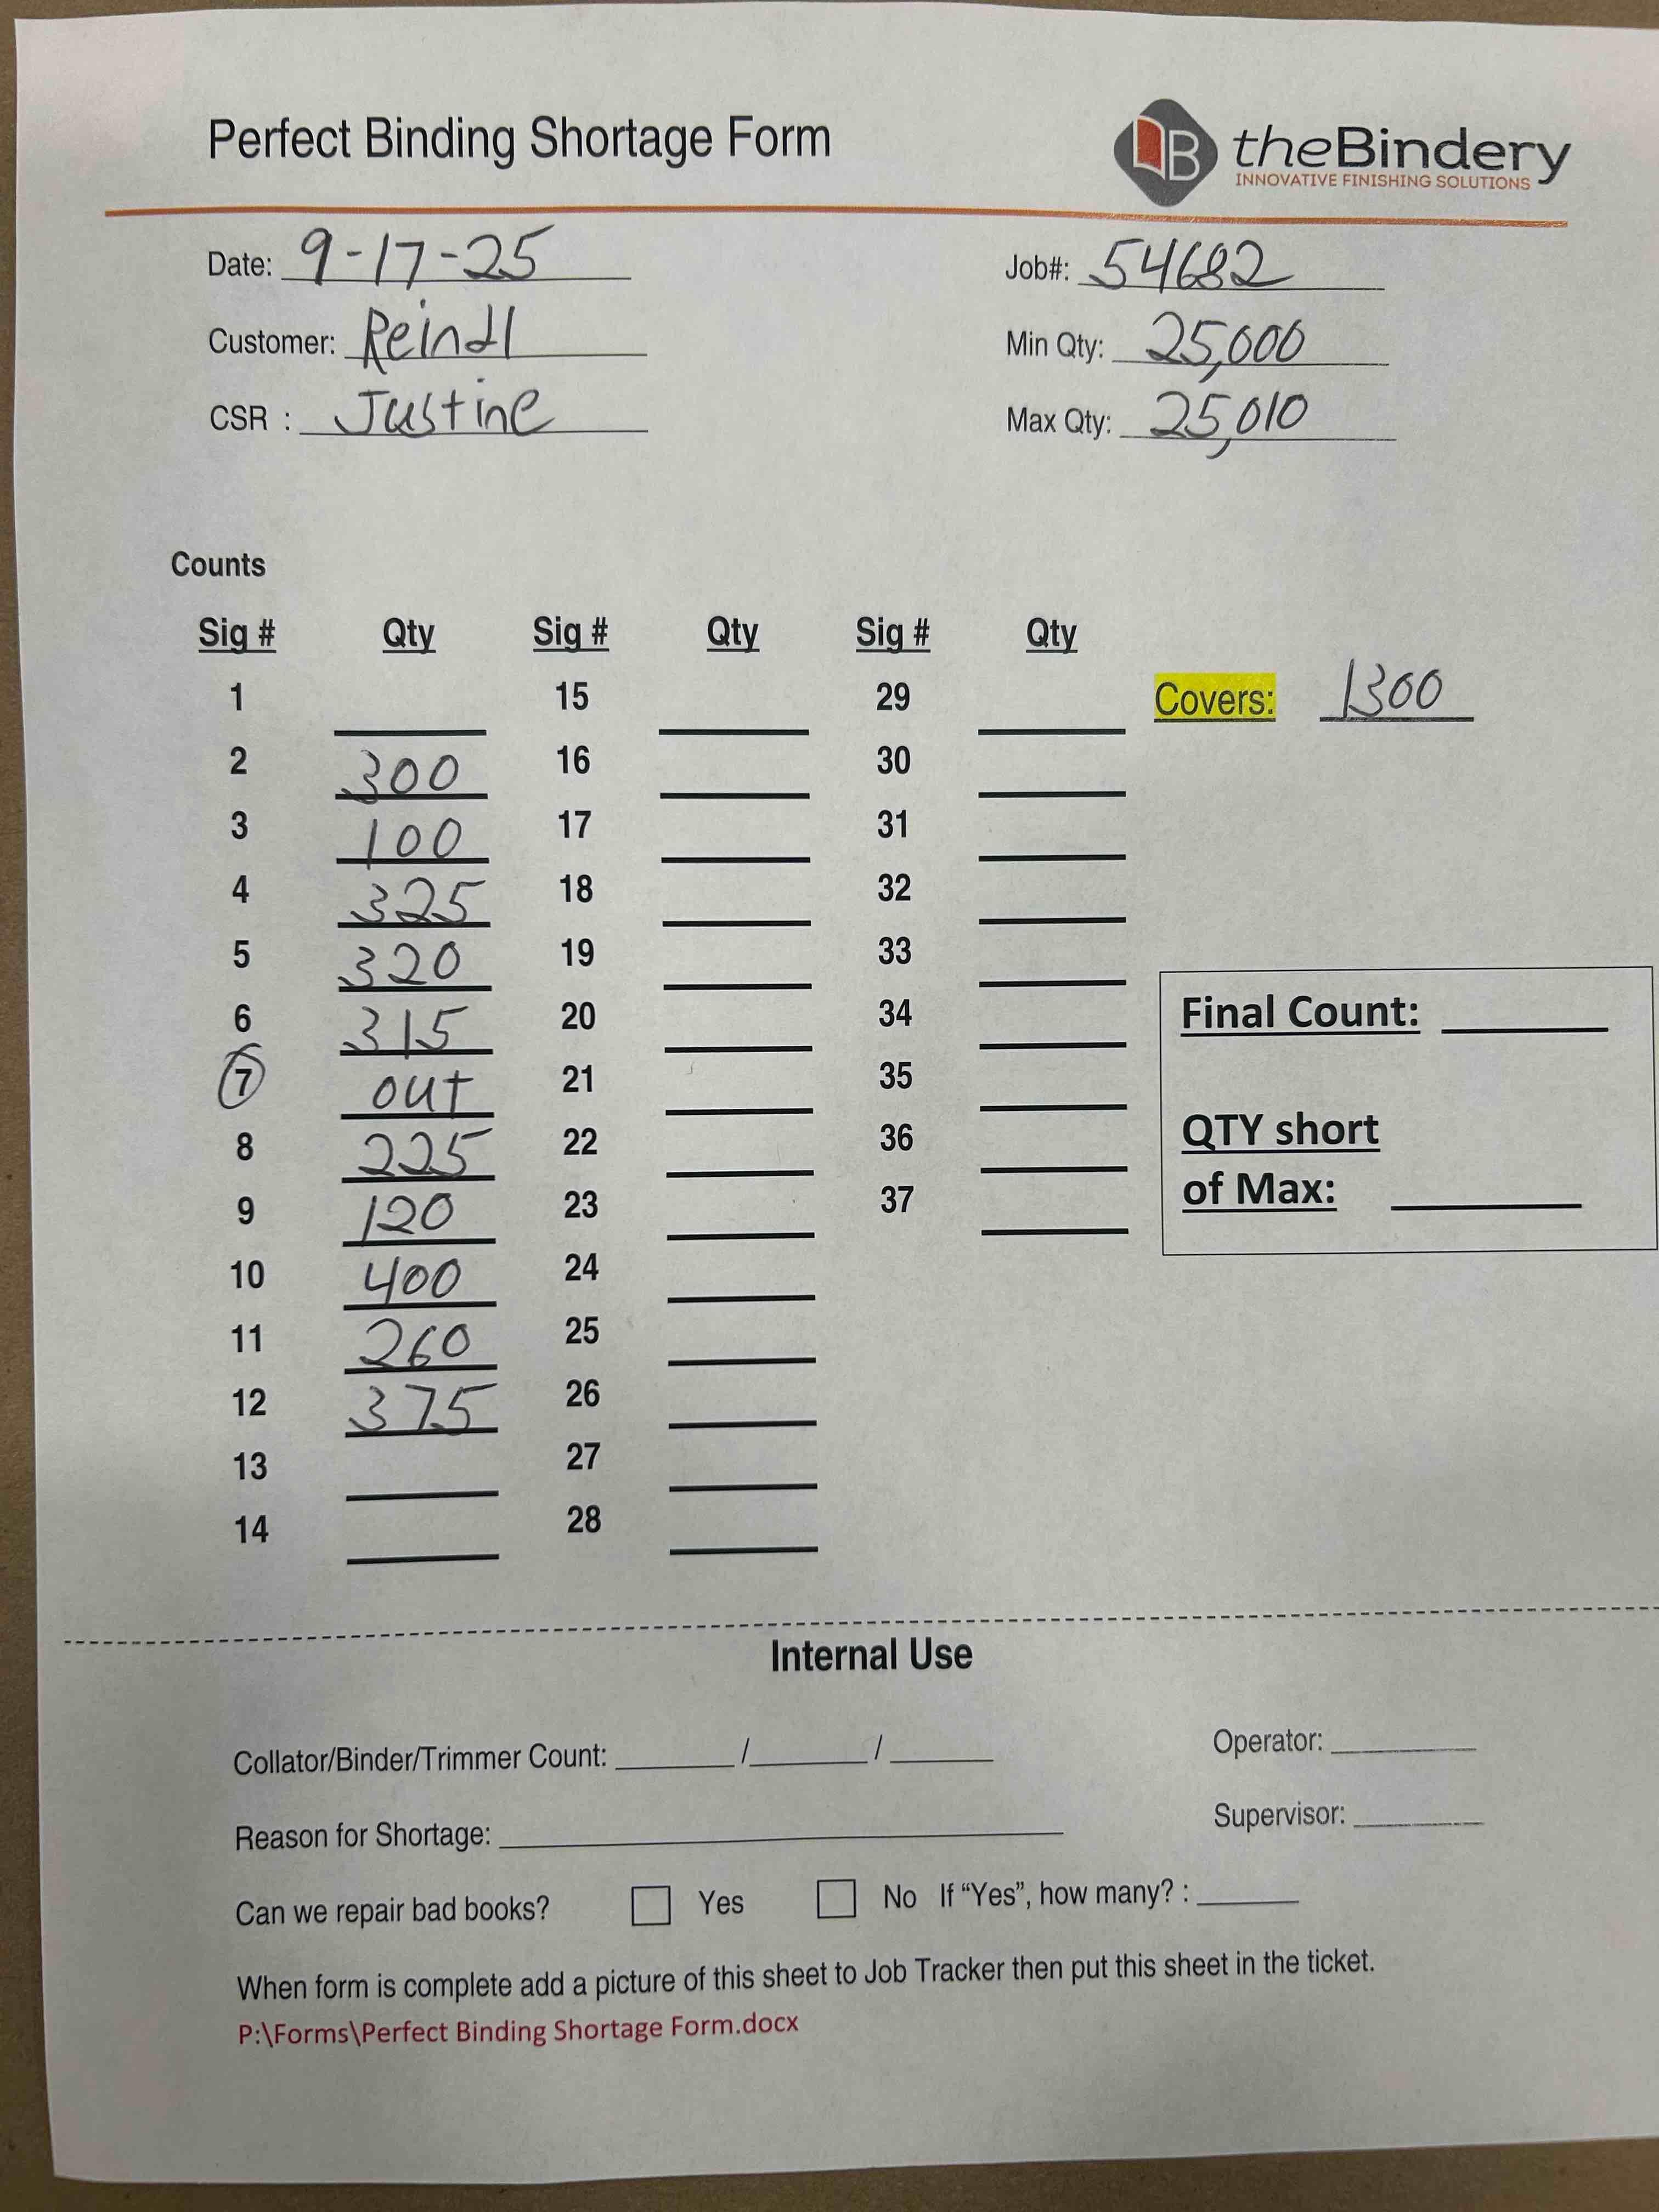 Perfect Binding Shortage Form
B theBindery
INNOVATIVE FINISHING SOLUTIONS
Date: 9-17-25 Job#: 54682
Customer: Reindl Min Qty: 25,000
CSR : Justine Max Qty: 25,010
Counts
Sig # Qty Sig # Qty Sig # Qty
1 15 29 Covers: 1300
2 300 16 30
3 100 17 31
4 325 18 32
5 320 19 33
6 315 20 34 Final Count:
7 out 21 35
8 225 22 36 QTY short
9 120 23 37 of Max:
10 400 24
11 260 25
12 375 26
13 27
14 28
Internal Use
Collator/Binder/Trimmer Count: / / Operator:
Reason for Shortage: Supervisor:
Can we repair bad books? Yes No If “Yes”, how many? :
When form is complete add a picture of this sheet to Job Tracker then put this sheet in the ticket.
P:\Forms\Perfect Binding Shortage Form.docx